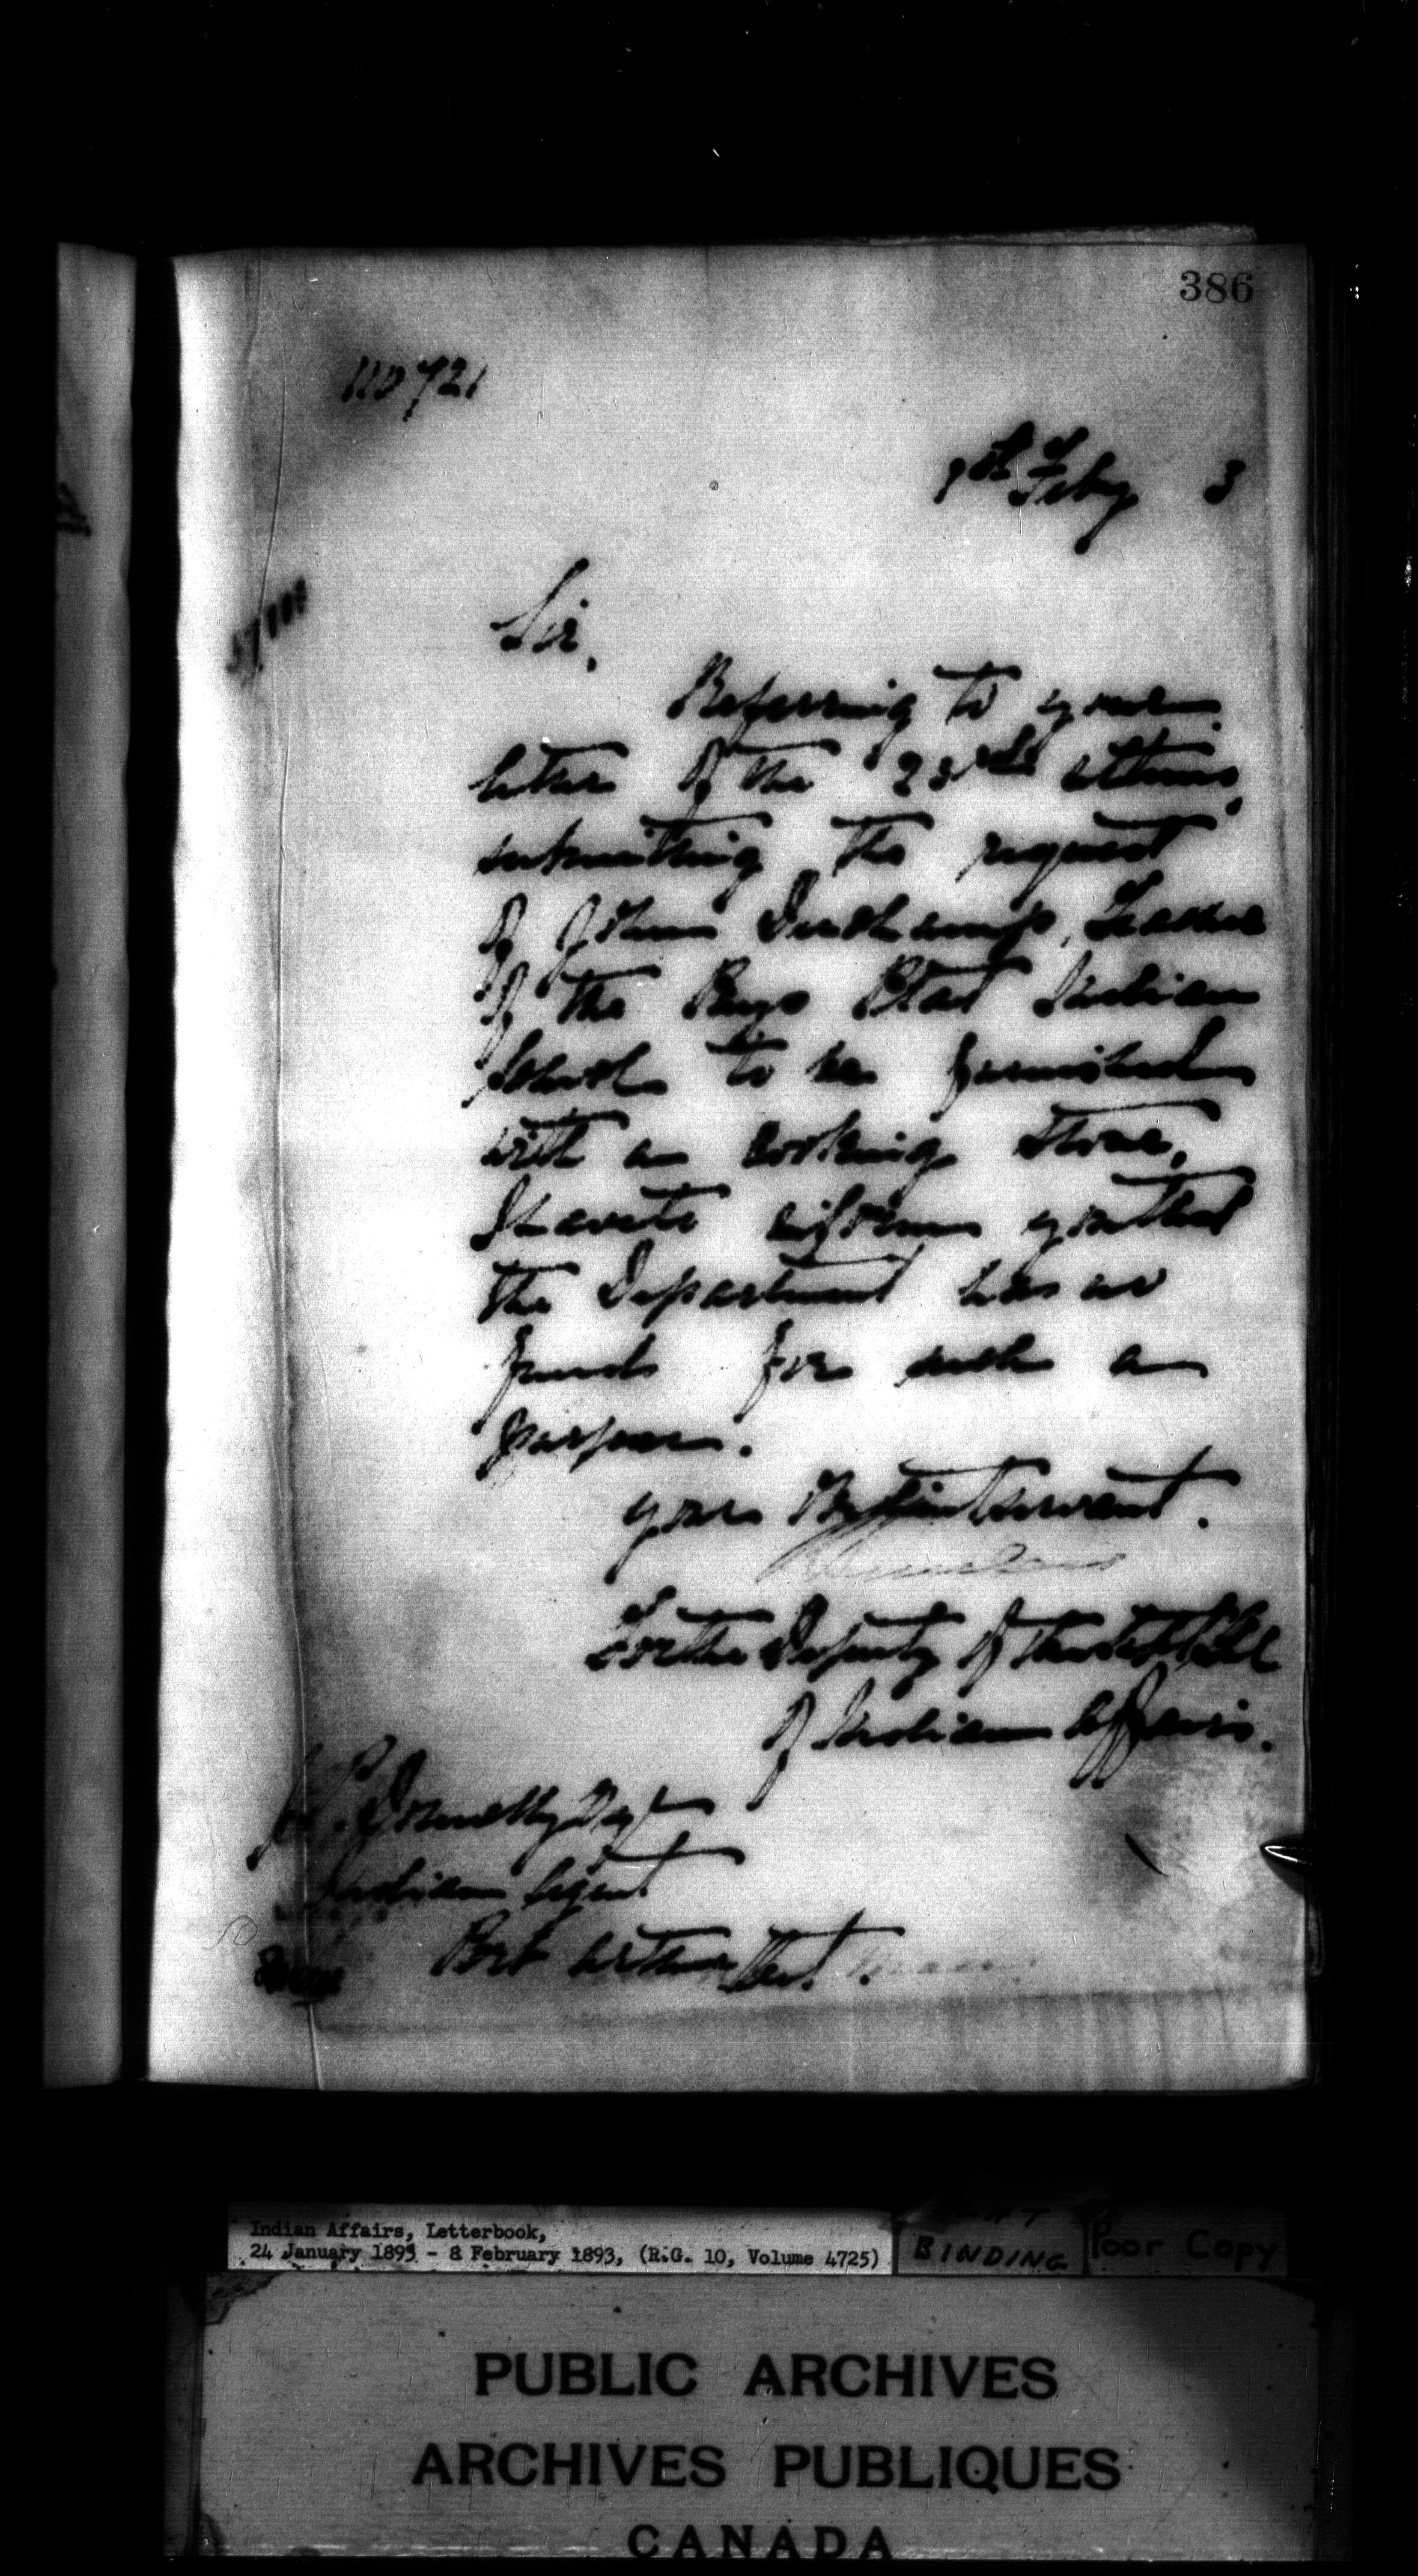 386
110721
1st Feby 3
Sir,
Referring to your
letter of the 23rd ultimo,
submitting the request
of John Deschamps, Teacher
of the Pays Plat Indian
School to be furnished
with a cooking stove,
I have to inform you that
the Department has no
funds for such a
purpose.
your obedient servant.
For the Deputy of the Supt Genl
of Indian Affairs.
J. P. Donnelly Esq
Indian Agent
Port Arthur Ont.
Indian Affairs, Letterbook,
24 January 1893 - 8 February 1893, (R.G. 10, Volume 4725)
BINDING
Poor Copy
PUBLIC ARCHIVES
ARCHIVES PUBLIQUES
CANADA